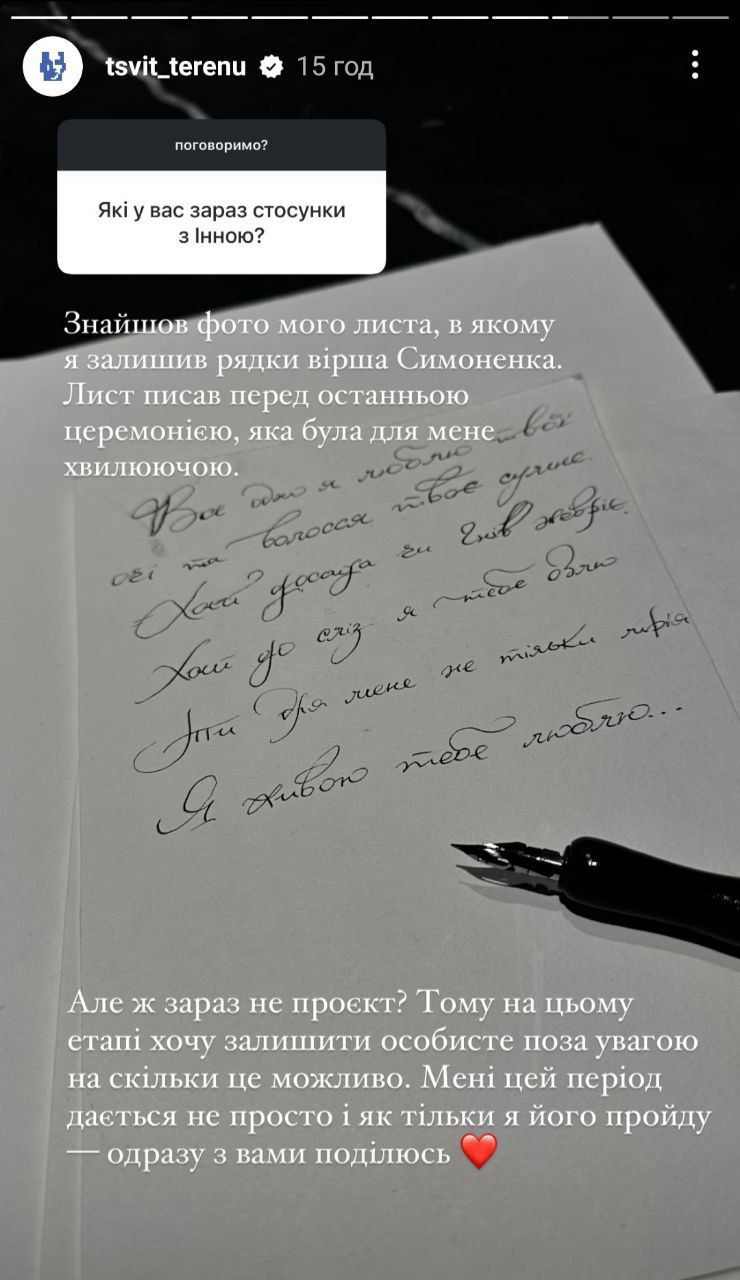 tsvit_terenu 15 год
поговоримо?
Які у вас зараз стосунки
з Інною?
Знайшов фото мого листа, в якому
я залишив рядки вірша Симоненка.
Лист писав перед останньою
церемонією, яка була для мене
хвилюючою.
Все одно я люблю твої
очі та волосся твоє сумне.
Хай досада чи гнів жевріє
Хай до сліз я тебе
Ти для мене не тільки мрія
Я живою тебе люблю...
Але ж зараз не проєкт? Тому на цьому
етапі хочу залишити особисте поза увагою
на скільки це можливо. Мені цей період
дається не просто і як тільки я його пройду
— одразу з вами поділюсь ❤️